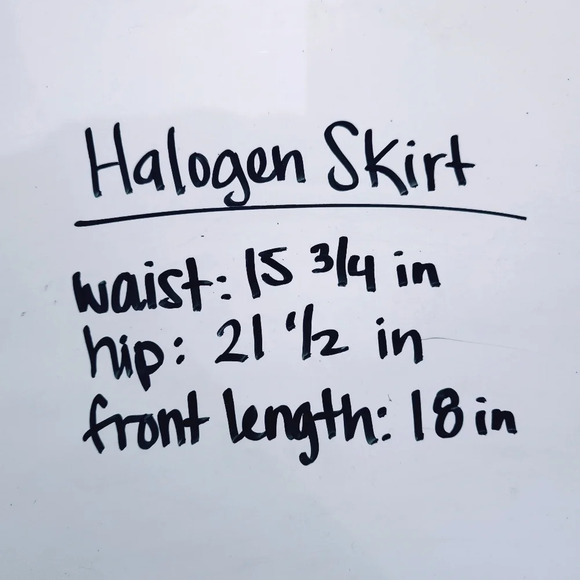 Halogen Skirt
waist: 15 3/4 in
hip: 21 1/2 in
front length: 18 in